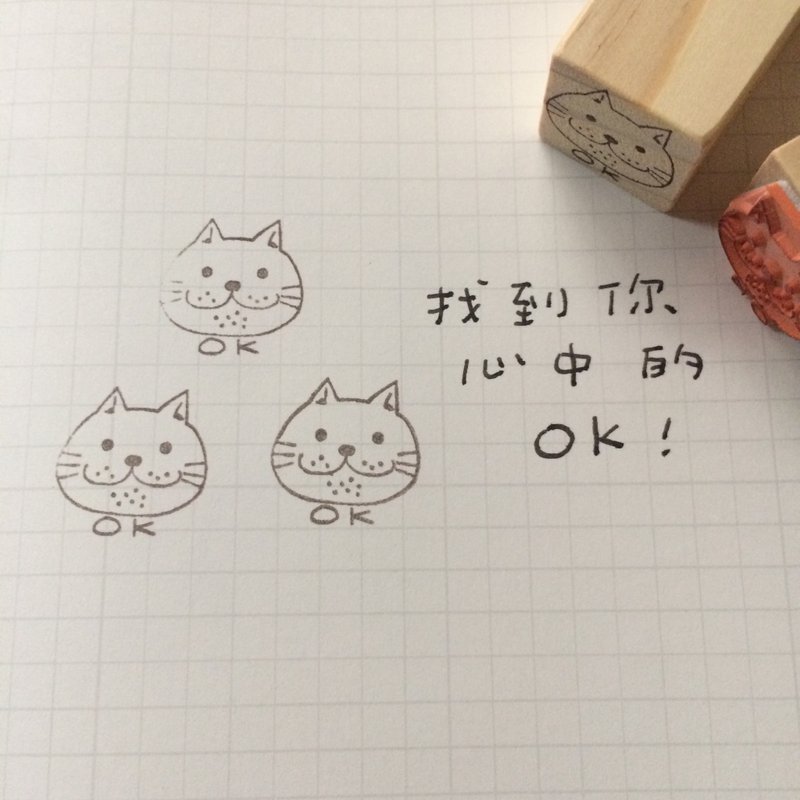 OK
OK
OK
OK
找到你
心中的
OK!